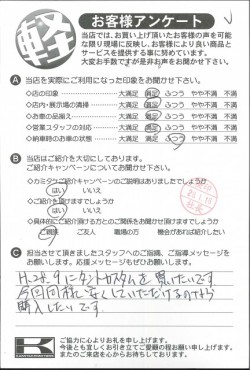 軽
お客様アンケート
当店では、お買い上げ頂いたお客様の声を可能
な限り現場に反映し、お客様により良い商品と
サービスを提供する事に努めています。
大変お手数ですが是非お声をお聞かせ下さい。
A 当店を実際にご利用になった印象をお聞かせ下さい。
◇店の印象 大満足 満足 ふつう やや不満 不満
◇店内・展示場の清掃 大満足 満足 ふつう やや不満 不満
◇お車の品揃え 大満足 満足 ふつう やや不満 不満
◇営業スタッフの対応 大満足 満足 ふつう やや不満 不満
◇納車時のお車の状態 大満足 満足 ふつう やや不満 不満
B 当店はご紹介を大切にしております。
ご紹介キャンペーンについてお聞かせ下さい。
◇カミタケご紹介キャンペーンのご説明はありましたでしょうか
はい いいえ
◇ご紹介を頂けますでしょうか
はい いいえ
◇具体的にご紹介頂ける方とのご関係をお聞かせ頂けますでしょうか
ご親族 ご友人 職場の方 機会があれば紹介したい
C 担当させて頂きましたスタッフへのご指摘、ご指導メッセージを
お願いします。応援メッセージもぜひお願いします。
タントカスタムを買いたいです。
今回同様、安くしていただけるのなら
購入したいです。
K
ご協力に心よりお礼を申し上げます。
今後とも宜しくお引き立てご愛顧の程お願い申し上げます。
またのご来店を心からお待ちしております。